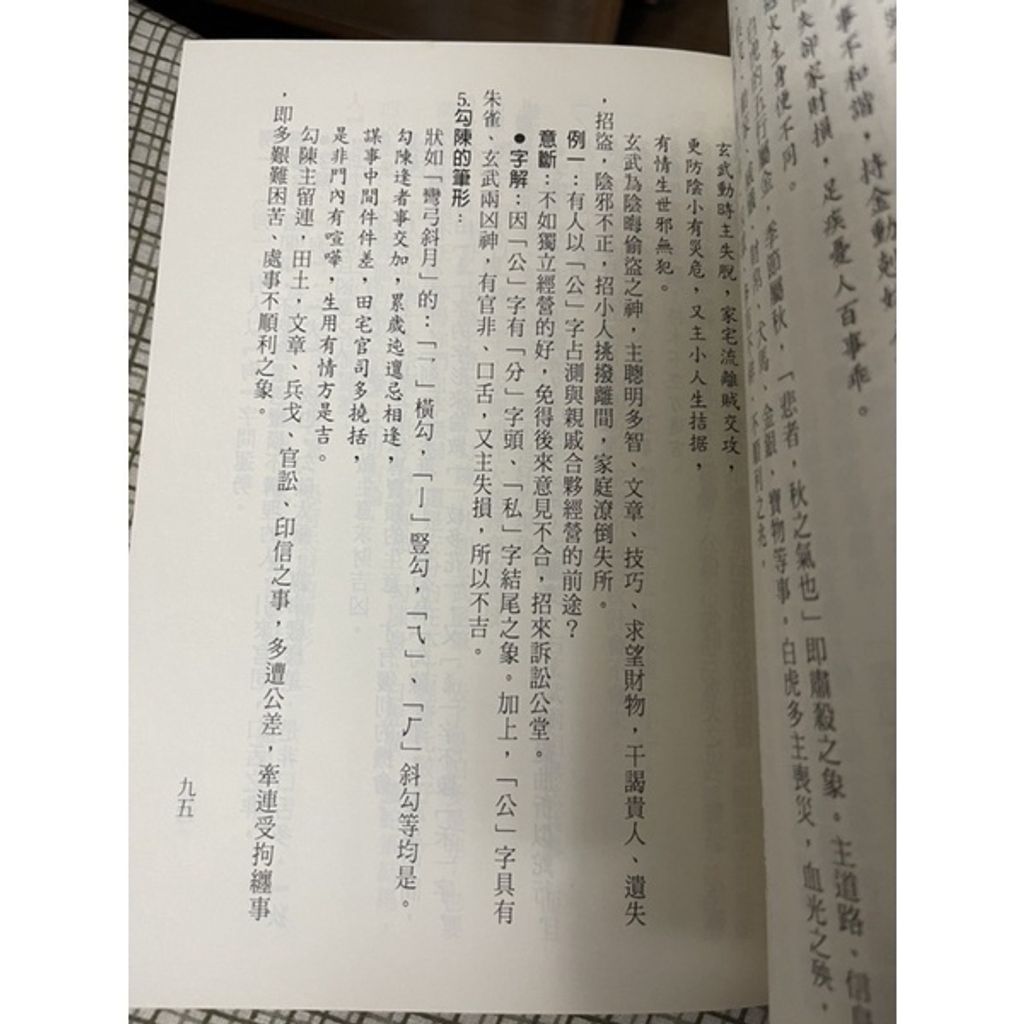 事不和諧，持金動剋
時損，足疾憂人百事乖。
火生身便不同。
屬金，季節屬秋，「悲者，秋之氣也」即肅殺之象。主道路、信
犬馬、金銀，寶物等事。白虎多主喪災，血光之殃，
不順利之兆。
玄武動時主失脫，家宅流離賊交攻，
更防陰小有災危，又主小人生拮据，
有情生世邪無犯。
玄武為陰晦偷盜之神，主聰明多智、文章、技巧、求望財物，干謁貴人、遺失
，招盜，陰邪不正，招小人挑撥離間，家庭潦倒失所。
例一：有人以「公」字占測與親戚合夥經營的前途？
意斷：不如獨立經營的好，免得後來意見不合，招來訴訟公堂。
●字解：因「公」字有「分」字頭、「私」字結尾之象。加上，「公」字具有
朱雀、玄武兩凶神，有官非、口舌，又主失損，所以不吉。
5.勾陳的筆形：
狀如「彎弓斜月」的：「乛」橫勾，「亅」豎勾，「乁」、「𠂆」斜勾等均是。
勾陳逢者事交加，累歲迍邅忌相逢，
謀事中間件件差，田宅官司多撓括，
是非門內有喧嘩，生用有情方是吉。
勾陳主留連，田土，文章、兵戈、官訟、印信之事，多遭公差，牽連受拘纏事
，即多艱難困苦、處事不順利之象。
九五